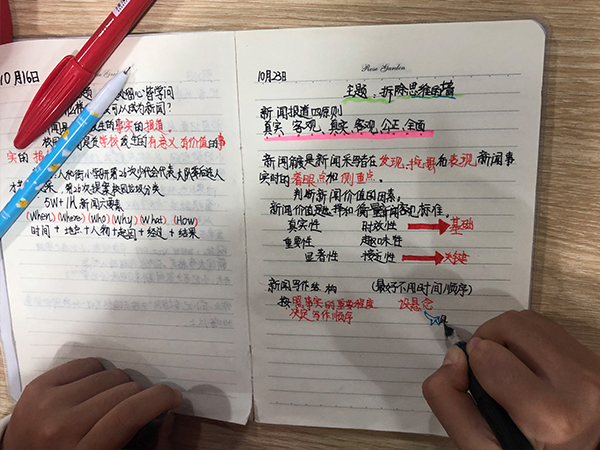 10月16日
Rose Garden
心皆学问
可以成为新闻?
发生的事实的报道。
是学校发生的有意义有价值的事
实的报
5W+1H 新闻六要素
(When) (Where) (Who) (Why) (What) (How)
时间 + 地点 + 人物 + 起因 + 经过 + 结果
Rose Garden
10月23日
主题:拆除思维的墙
新闻报道四原则
真实 客观 真实 客观 公正 全面
新闻角度是新闻采写者在发现、挖掘和表现新闻事
实时的着眼点和侧重点。
判断新闻价值的因素,
新闻价值是选择和衡量新闻客观标准。
真实性 时效性 基础
重要性 趣味性
显著性 接近性 关键
新闻写作结构 (最好不用时间顺序)
按照事实的重要程度 设悬念
决定写作顺序